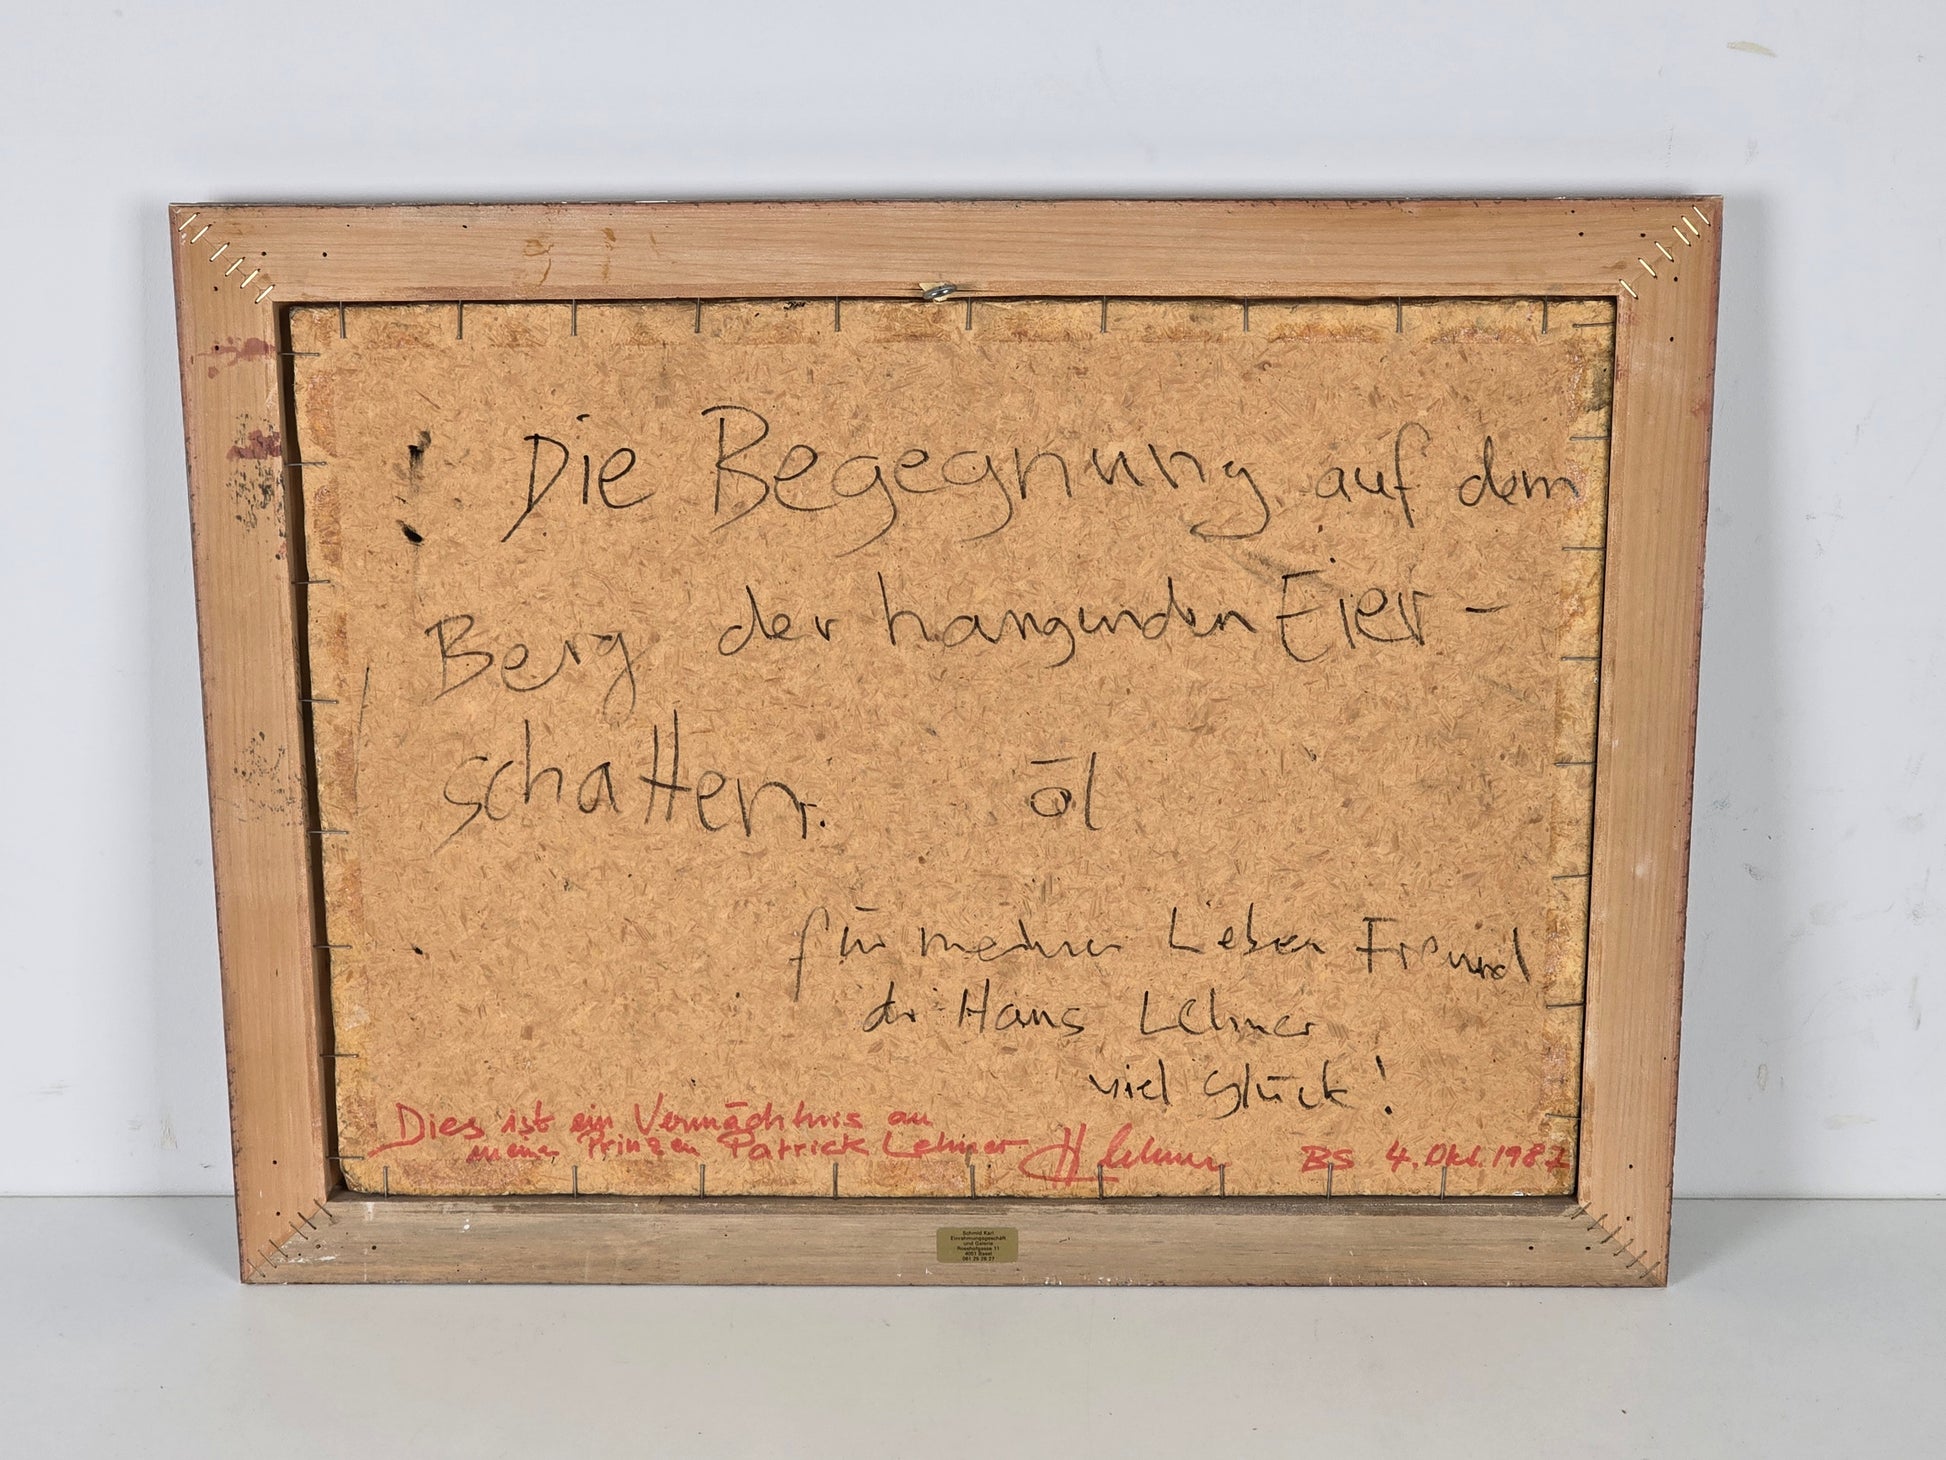 ! Die Begegnung auf dem
Berg der hangenden Eier-
schatten. öl
für meinen Lieben Freund
der Hans Lehner
viel Glück!
Dies ist ein Vermächtnis an
meinen Prinzen Patrick Lehner H Lehner BS 4. Okt. 1987
Schmid Karl
Einrahmungsgeschäft
und Galerie
Rosshofgasse 11
4051 Basel
061 25 26 27